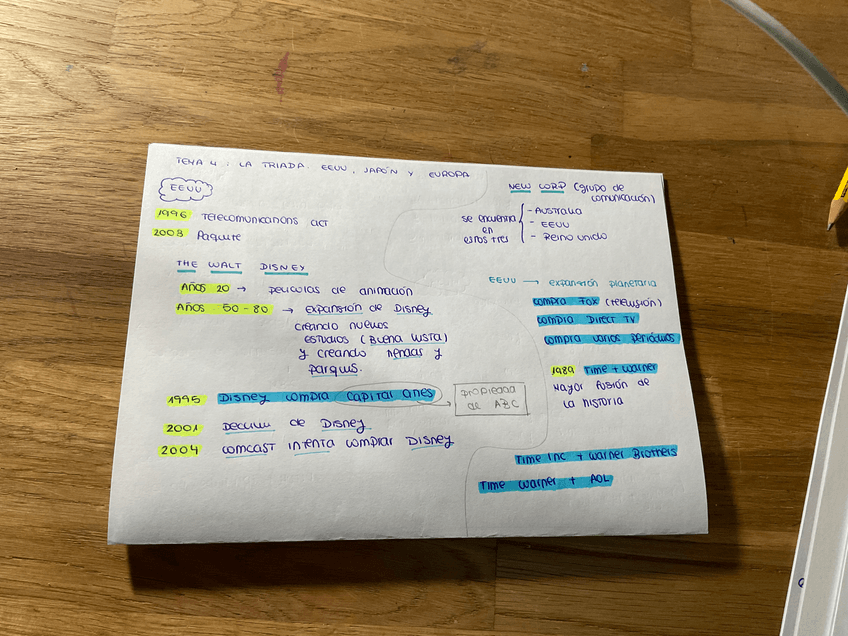 TEMA 4 : LA TRIADA. EEUU, JAPÓN Y EUROPA
EEUU
1996 Telecomunications act
2003 Paquete
THE WALT DISNEY
AÑOS 20 → películas de animación
AÑOS 50-80 → expansión de Disney
creando nuevos
estudios (Buena Vista)
y creando tiendas y
parques.
1995 Disney compra capital cities
propiedad
de ABC
2001 Declive de Disney
2004 comcast intenta comprar Disney
NEW CORP (grupo de
comunicación)
se encuentra
en
estos tres
- Australia
- EEUU
- Reino Unido
EEUU → expansión planetaria
compra FOX (televisión)
compra Direct TV
compra varios periódicos
1989 Time + Warner
Mayor fusión de
la historia
Time Inc + Warner Brothers
Time Warner + AOL